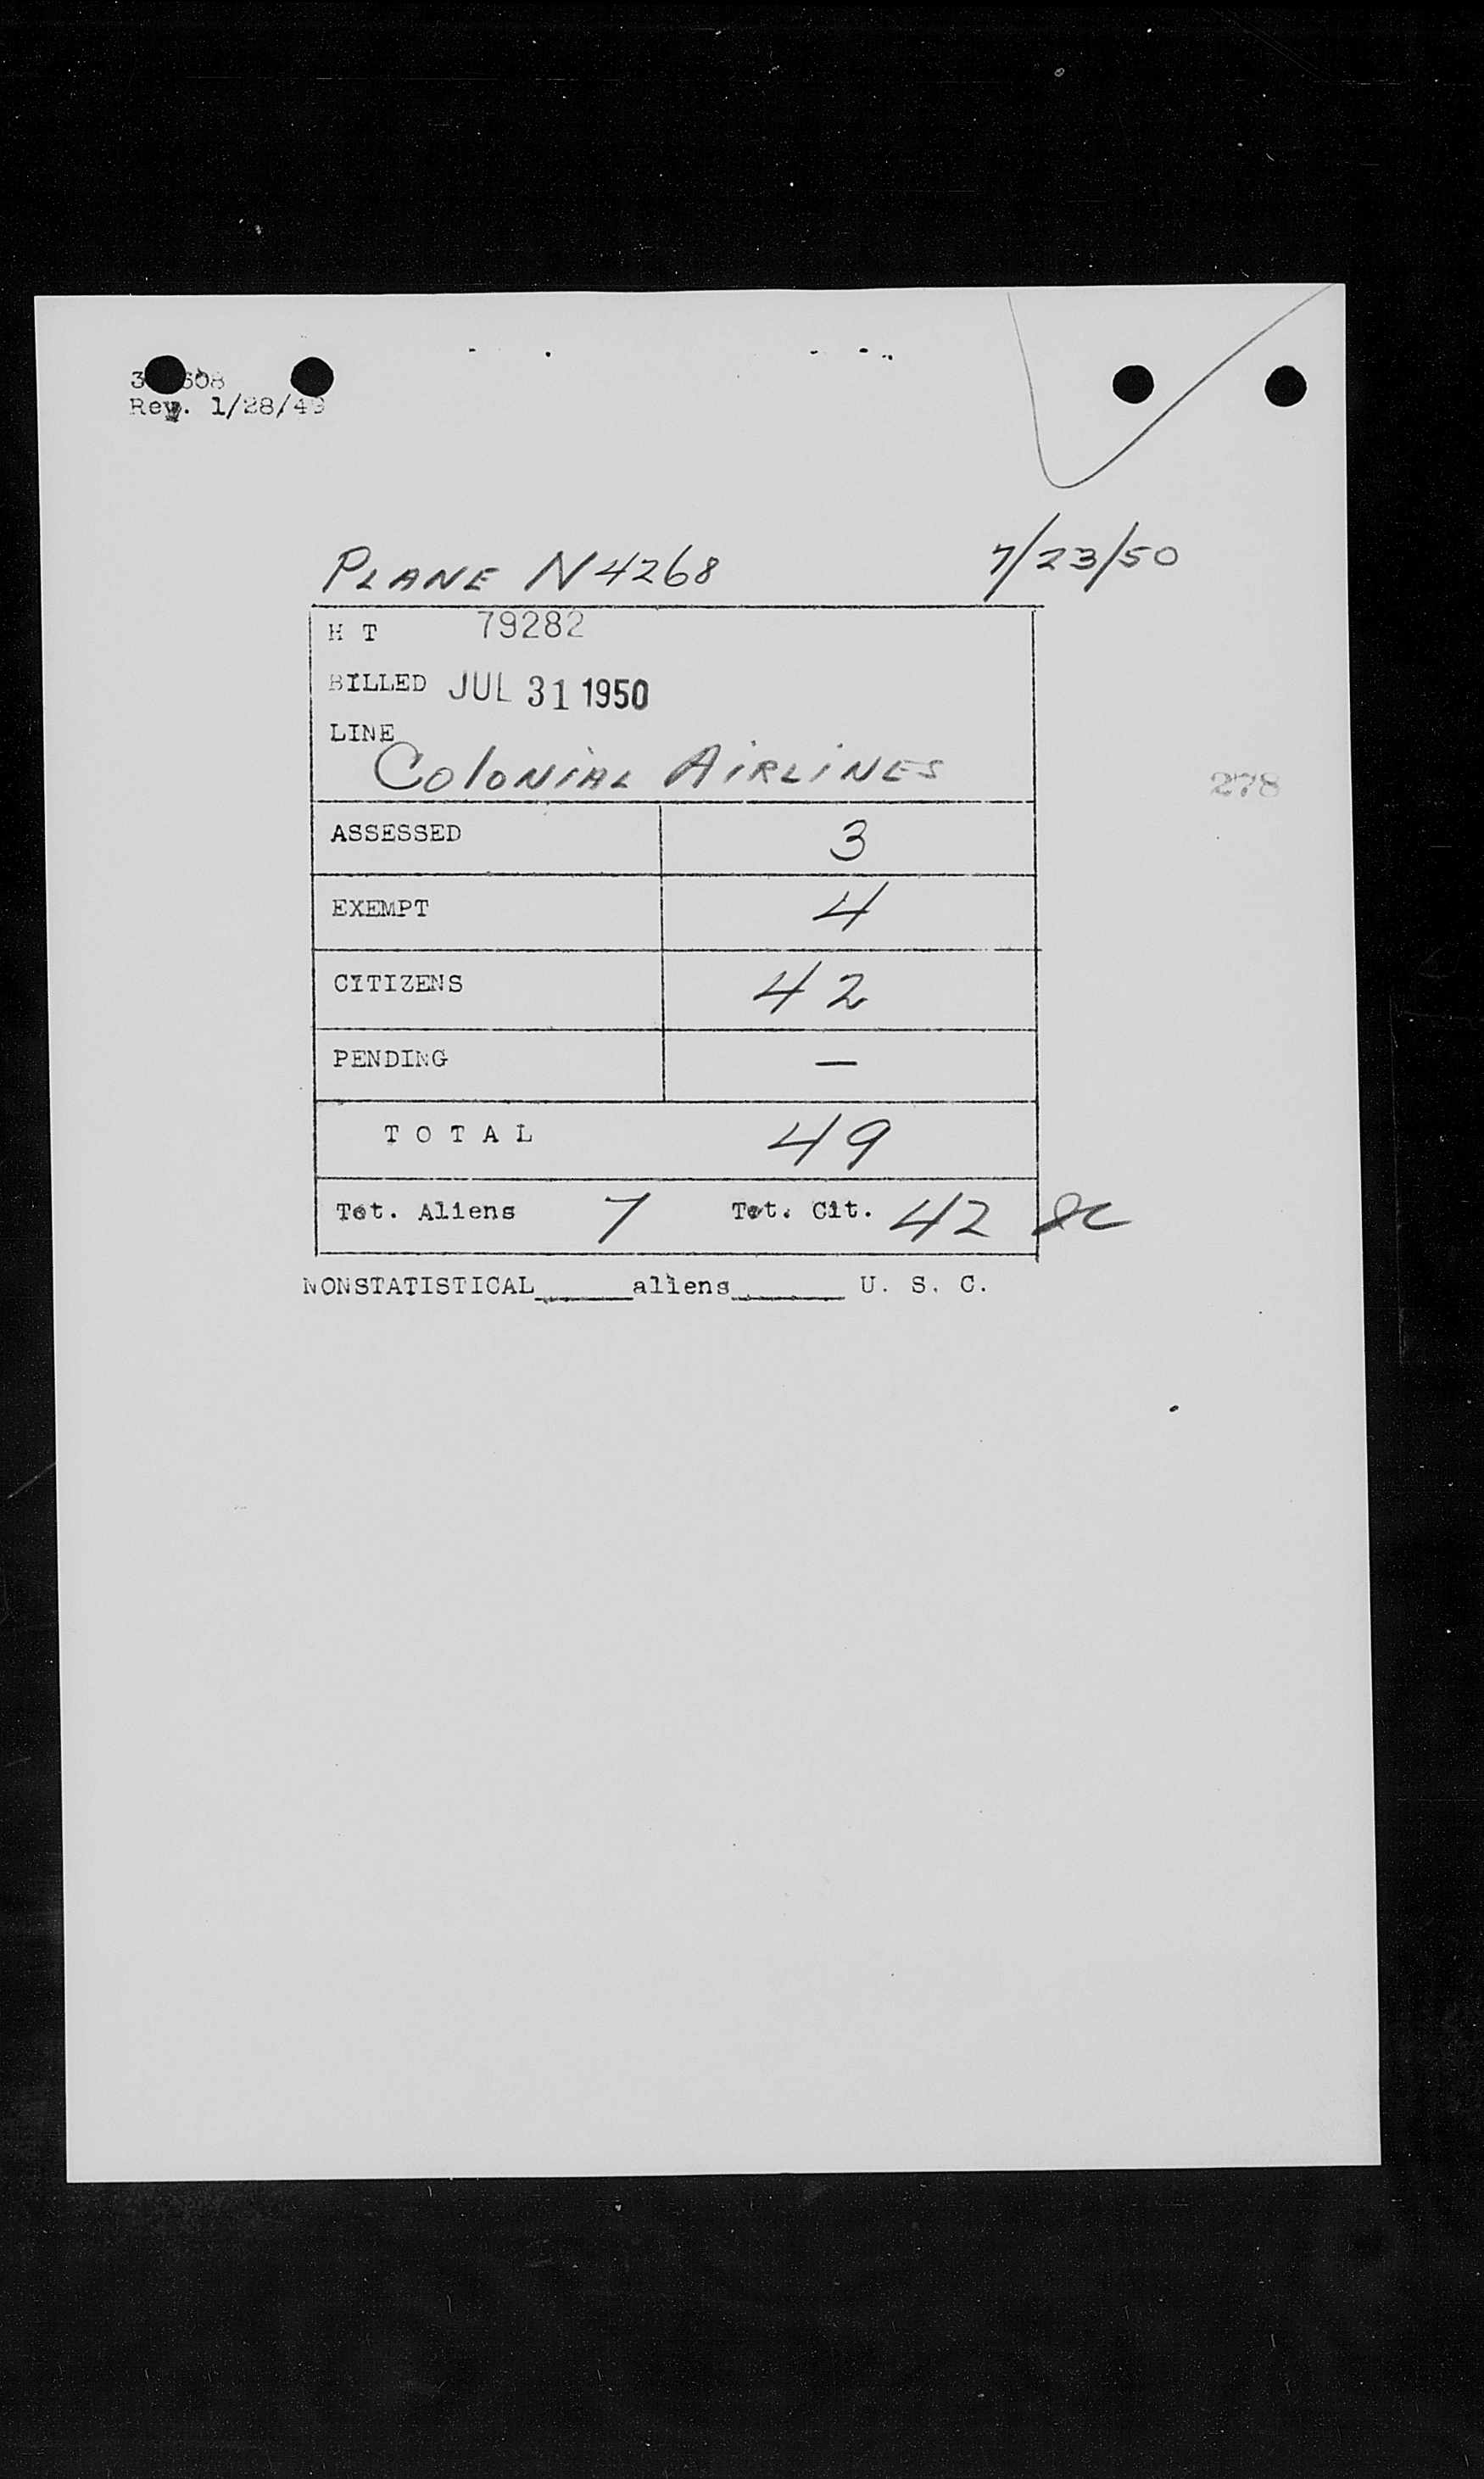 Rev. 1/28/49
PLANE N4268 7/23/50
H T 79282
BILLED JUL 31 1950
LINE
COLONIAL AIRLINES
278
ASSESSED 3
EXEMPT 4
CITIZENS 42
PENDING —
T O T A L 49
Tot. Aliens 7 Tot. Cit. 42
NONSTATISTICAL_____aliens______ U. S. C.